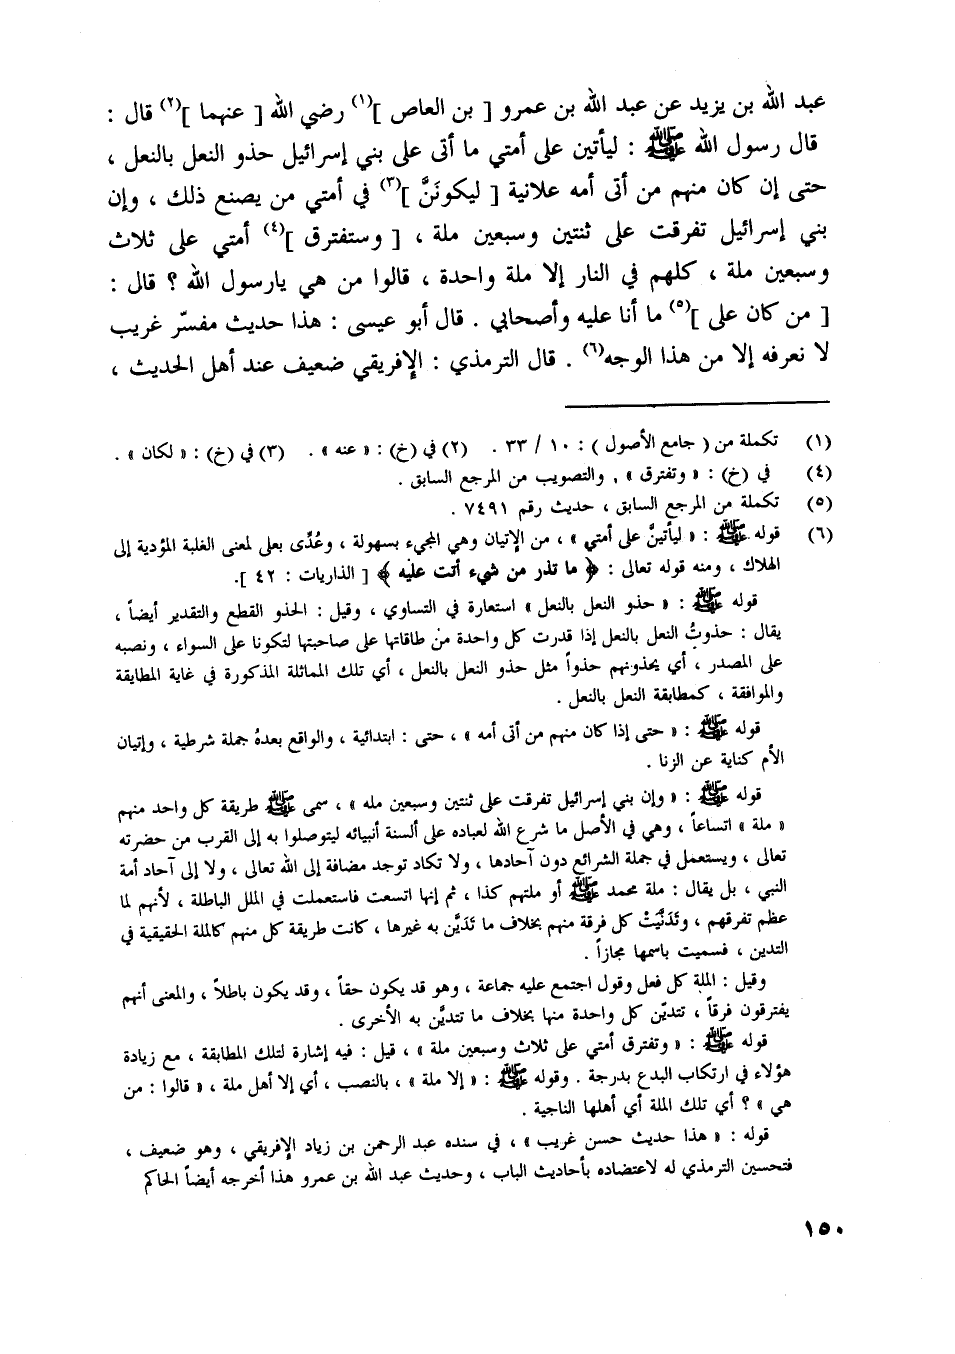 عبد الله بن يزيد عن عبد الله بن عمرو [ بن العاص ](١) رضي الله [ عنهما ](٢) قال :
قال رسول الله ﷺ : ليأتين على أمتي ما أتى على بني إسرائيل حذو النعل بالنعل ،
حتى إن كان منهم من أتى أمه علانية [ ليكونَنَّ ](٣) في أمتي من يصنع ذلك ، وإن
بني إسرائيل تفرقت على ثنتين وسبعين ملة ، [ وستفترق ](٤) أمتي على ثلاث
وسبعين ملة ، كلهم في النار إلا ملة واحدة ، قالوا من هي يارسول الله ؟ قال :
[ من كان على ](٥) ما أنا عليه وأصحابي . قال أبو عيسى : هذا حديث مفسّر غريب
لا نعرفه إلا من هذا الوجه(٦) . قال الترمذي : الإفريقي ضعيف عند أهل الحديث ،
(١) تكملة من ( جامع الأصول ) : ١٠ / ٣٣ . (٢) في (خ) : « عنه » . (٣) في (خ) : « لكان » .
(٤) في (خ) : « وتفترق » , والتصويب من المرجع السابق .
(٥) تكملة من المرجع السابق ، حديث رقم ٧٤٩١ .
(٦) قوله ﷺ : « ليأتينَّ على أمتي » ، من الإتيان وهي المجيء بسهولة ، وعُدِّى بعلى لمعنى الغلبة المؤدية إلى
الهلاك ، ومنه قوله تعالى : ﴿ ما تذر من شيء أتت عليه ﴾ [ الذاريات : ٤٢ ].
قوله ﷺ : « حذو النعل بالنعل » استعارة في التساوي ، وقيل : الحذو القطع والتقدير أيضاً ،
يقال : حذوتُ النعل بالنعل إذا قدرت كل واحدة من طاقاتها على صاحبتها لتكونا على السواء ، ونصبه
على المصدر ، أي يحذونهم حذواً مثل حذو النعل بالنعل ، أي تلك المماثلة المذكورة في غاية المطابقة
والموافقة ، كمطابقة النعل بالنعل .
قوله ﷺ : « حتى إذا كان منهم من أتى أمه » ، حتى : ابتدائية ، والواقع بعدهُ جملة شرطية ، وإتيان
الأم كناية عن الزنا .
قوله ﷺ : « وإن بني إسرائيل تفرقت على ثنتين وسبعين مله » ، سمى ﷺ طريقة كل واحد منهم
« ملة » اتساعاً ، وهي في الأصل ما شرع الله لعباده على ألسنة أنبيائه ليتوصلوا به إلى القرب من حضرته
تعالى ، ويستعمل في جملة الشرائع دون آحادها ، ولا تكاد توجد مضافة إلى الله تعالى ، ولا إلى آحاد أمة
النبي ، بل يقال : ملة محمد ﷺ أو ملتهم كذا ، ثم إنها اتسعت فاستعملت في الملل الباطلة ، لأنهم لما
عظم تفرقهم ، وتَدَيَّنَتْ كل فرقة منهم بخلاف ما تَدَيَّن به غيرها ، كانت طريقة كل منهم كالملة الحقيقية في
التدين ، فسميت باسمها مجازاً .
وقيل : الملة كل فعل وقول اجتمع عليه جماعة ، وهو قد يكون حقاً ، وقد يكون باطلاً ، والمعنى أنهم
يفترقون فرقاً ، تتديّن كل واحدة منها بخلاف ما تتديَّن به الأخرى .
قوله ﷺ : « وتفترق أمتي على ثلاث وسبعين ملة » ، قيل : فيه إشارة لتلك المطابقة ، مع زيادة
هؤلاء في ارتكاب البدع بدرجة . وقوله ﷺ : « إلا ملة » ، بالنصب ، أي إلا أهل ملة ، « قالوا : من
هي » ؟ أي تلك الملة أي أهلها الناجية .
قوله : « هذا حديث حسن غريب » ، في سنده عبد الرحمن بن زياد الإفريقي ، وهو ضعيف ،
فتحسين الترمذي له لاعتضاده بأحاديث الباب ، وحديث عبد الله بن عمرو هذا أخرجه أيضاً الحاكم
١٥٠